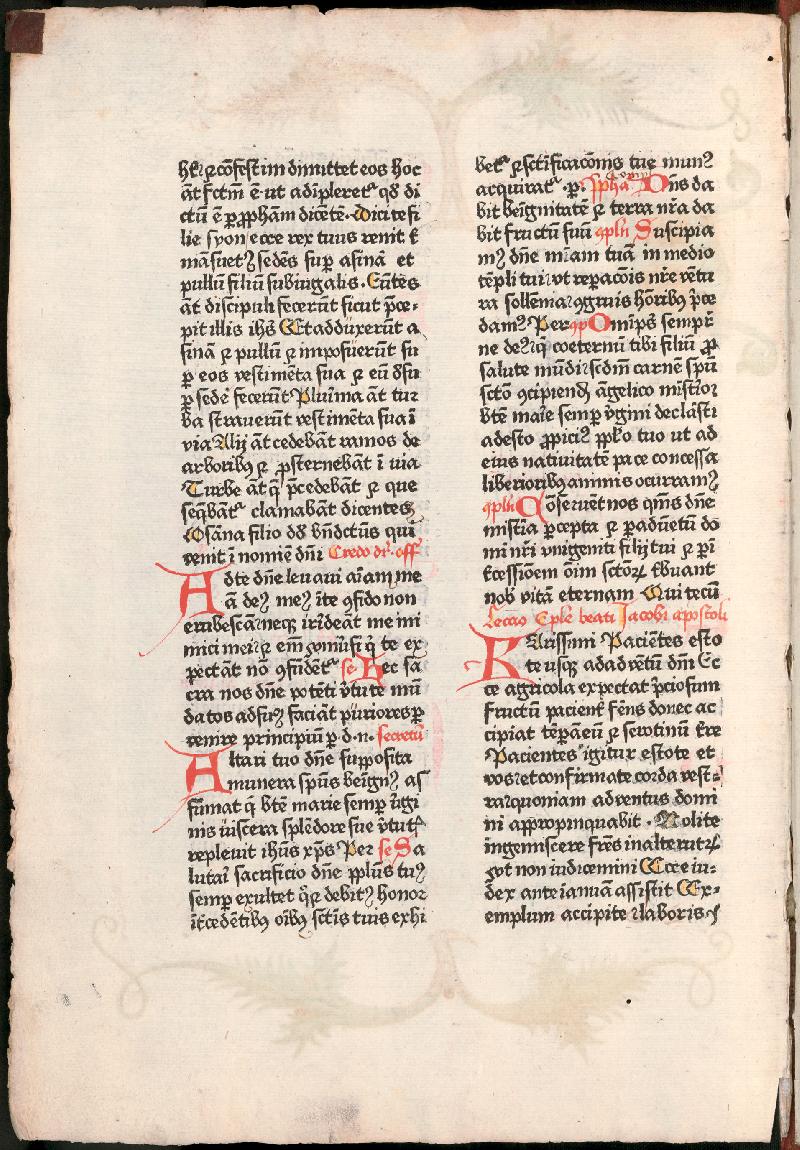 hēt ⁊ cōfestim dimittet eos hoc
āt fctm̄ ē ut adīpleretᷣ qd di
ctū ē ꝑ ꝓphām dicētē · Dicite fi
lie syon ecce rex tuus venit t
māsuetꝯ sedēs suꝑ asinā et
pullū filiū subiugalis · Eūtes
āt discipuli fecerūt sicut p̄ce-
pit illis ih̄s Et adduxerūt a
sinā ⁊ pullū ⁊ imposuerūt su
ꝑ eos vestimēta sua ⁊ eū dsu
ꝑ sedē fecerūt Pluīma āt tur
ba strauerūt vestimēta sua ī
via Alij āt cedebāt ramos de
arboribꝯ ⁊ ꝓsternebāt ī via
Turbe āt q̄ p̄cedebāt ⁊ que
seq̄bātᷣ clamabāt dicentes
Osāna filio dd bn̄dctūs qui
venit ī nomīe dn̄i Credo dr̄ · off
Ad te dn̄e leuaui aīam me
ā deꝯ meꝯ ī te ꝯfido non
erubescā neqꝫ irīdeāt me ini
mici mei ⁊ em̄ vniūsi q̄ te ex
pectāt nō ꝯfūdētᷣ se Hec sa
cra nos dn̄e potēti v̄tute mū
datos ad suꝯ faciāt puriores ꝑ
venire principiū ꝑ d · n · secretū
Altari tuo dn̄e suꝑposita
munera spūs beīgnꝯ as
sumat q̄ bt̄e marie semꝑ v̄gi
nis viscera splēdore sue v̄tutꝭ
repleuit ih̄us xp̄s Per se Sa
lutaī sacrificio dn̄e pplūs tuꝯ
semꝑ exultet q̄s debitꝯ honor
īt̄cedētibꝯ oībꝯ sctīs tuis exhi
betᷣ ⁊ sctīficacōnis tue munꝯ
acquiratᷣ · ꝑ · Dn̄s da
bit beīgnitatē ⁊ terra nr̄a da
bit fructū suū ꝯpln̄ Suscipia
mꝯ dn̄e mīam tuā in medio
tēpli tui vt repacōis nr̄e vētu
ra sollemia ꝯgruis hōribꝯ p̄ce
damꝯ Per ꝯp Omīps̄ sempit̄
ne deꝯ q̄ coeternū tibi filiū ꝓ
salute mūdi scdm̄ carnē spū
sctō ꝯcipiendū āgelico mīst̄io
bt̄e marīe semꝑ v̄gini declāsti
adesto ꝓpiciꝯ pplo tuo ut ad
eius natiuitatē pace concessa
liberioribꝯ animis occurramꝯ
ꝯpln̄ Cōseruēt nos qm̄s dn̄e
mistīa ꝑcepta ⁊ ꝑ aduētū do
mini nr̄i vnigeniti filij tui ⁊ ꝑ ī
t̄cessiōem oīm sctoꝝ t̄buant
nob vitā eternam Qui tecū
Leccio Ep̄le beati Jacobi apostoli
Karissimi Pacientes esto
te usqꝫ ad adūetū dn̄i Ec
ce agricola expectat p̄ciosum
fructū pacient̄ ferēs donec ac
cipiat tēpaneū ⁊ serotinū t̄re
Pacientes igitur estote et
vos ⁊ et confirmate corda vest-
ra quoniam adventus domi
ni appropinquabit · Nolite
ingemiscere frēs in alterutꝝ
vt non iudicemini Ecce iu-
dex ante ianuā assistit Ex-
emplum accipite ⁊ laboris ⁊